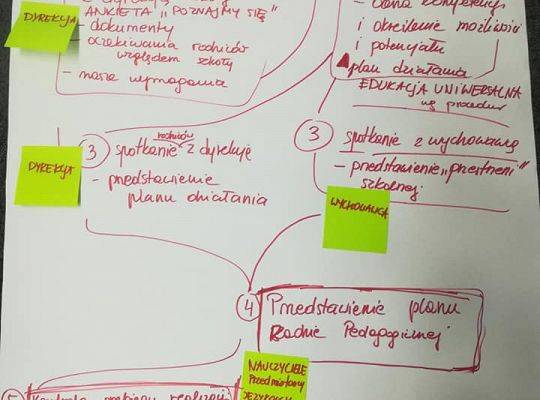 ANKIETA „POZNAJMY SIĘ"
DYREKCJA
- dokumenty
oczekiwania rodziców
względem szkoły
- nasze wymagania
i określenie możliwości
i potencjału
plan działania
EDUKACJA UNIWERSALNA
wg procedur
DYREKCJA
3
rodziców
spotkanie z dyrekcją
- przedstawienie
planu działania
3
spotkanie z wychowawcą
- przedstawienie „przestrzeni"
szkolnej
WYCHOWAWCA
4
Przedstawienie planu
Radzie Pedagogicznej
NAUCZYCIELE
Przedmiotowy
5